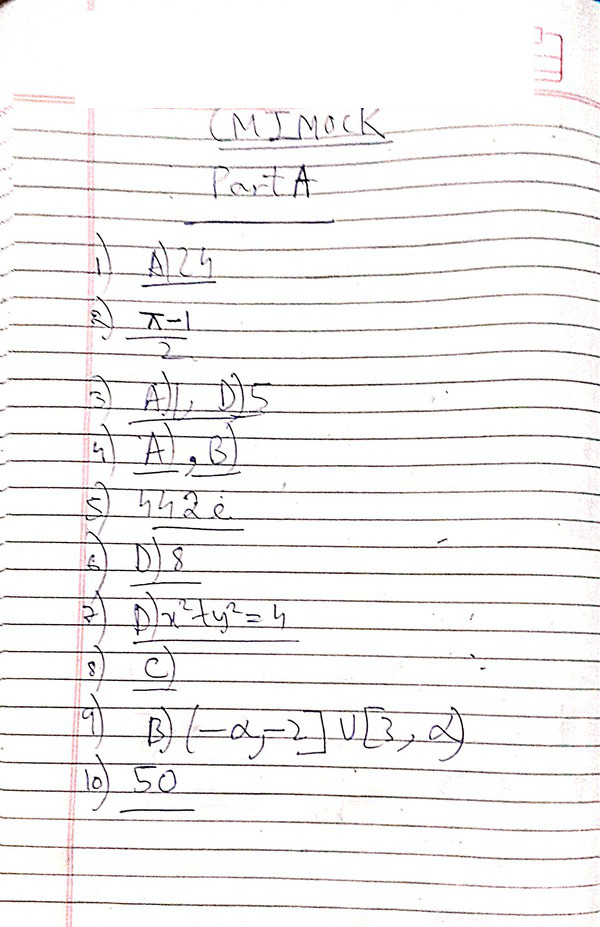 CMI MOCK
Part A
1) A) 24
2) π-1
2
3) A) 1, D) 5
4) A), B)
5) 442 i
6) D) 8
7) D) x²+y²=4
8) C)
9) B) (-α,-2] ∪ [3, α)
10) 50